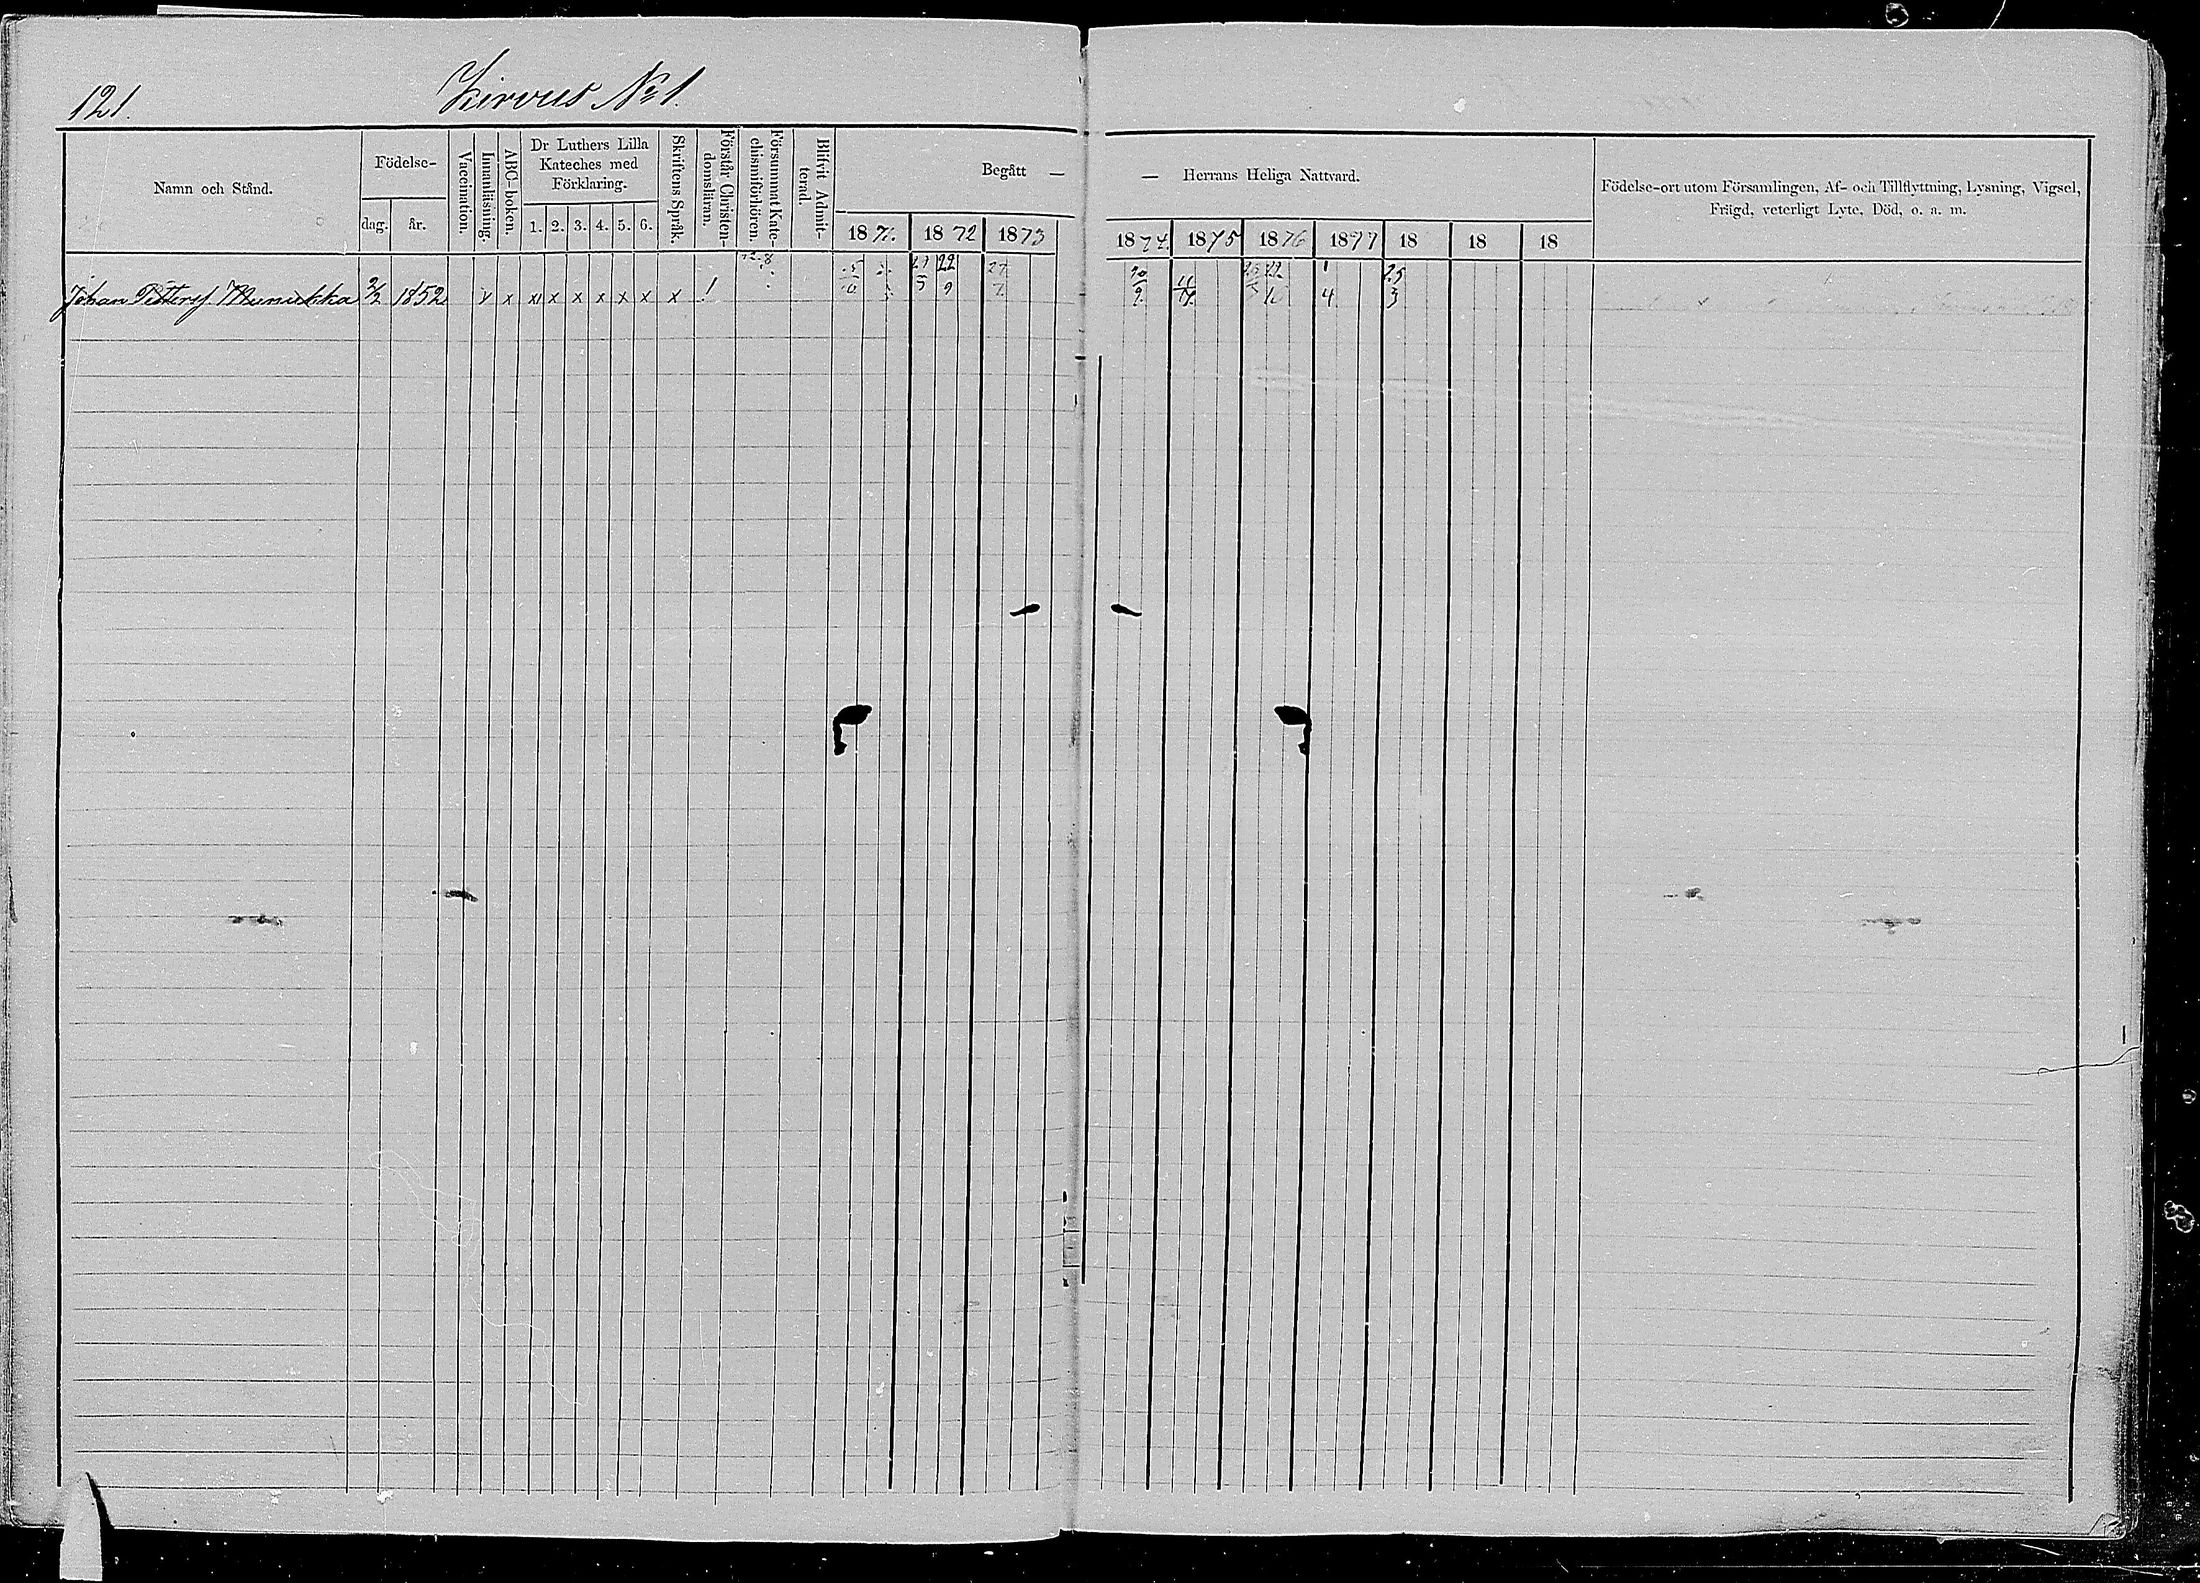 121. Kirvus No 1.
Namn och Stånd.
Födelse-
dag. år.
Vaccination.
Innanläsning.
ABC-boken.
Dr Luthers Lilla
Kateches med
Förklaring.
1. 2. 3. 4. 5. 6.
Skriftens Språk.
Förstår Christen-
domsläran.
Försummat Kate-
chismiförhören.
Blifvit Admit-
terad.
Begått —
1871. 1872 1873
— Herrans Heliga Nattvard.
1874. 1875 1876 1877 18 18 18
Födelse-ort utom Församlingen, Af- och Tillflyttning, Lysning, Vigsel,
Frägd, veterligt Lyte, Död, o. a. m.
Johan Pettersf 1852 x x x x x x x x 22/9 20/9 1/4 25/3